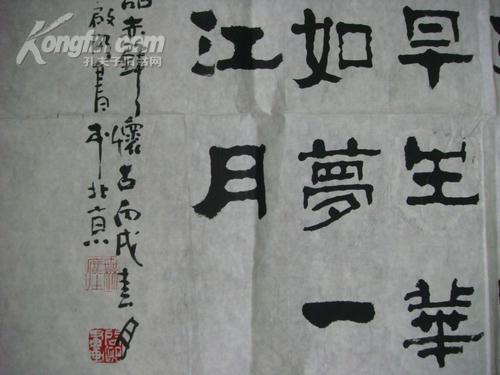 早生華
如夢一
江月
韶赤壁懷古丙戌春月
啟明書於北京
Kongfz.com
孔夫子旧书网